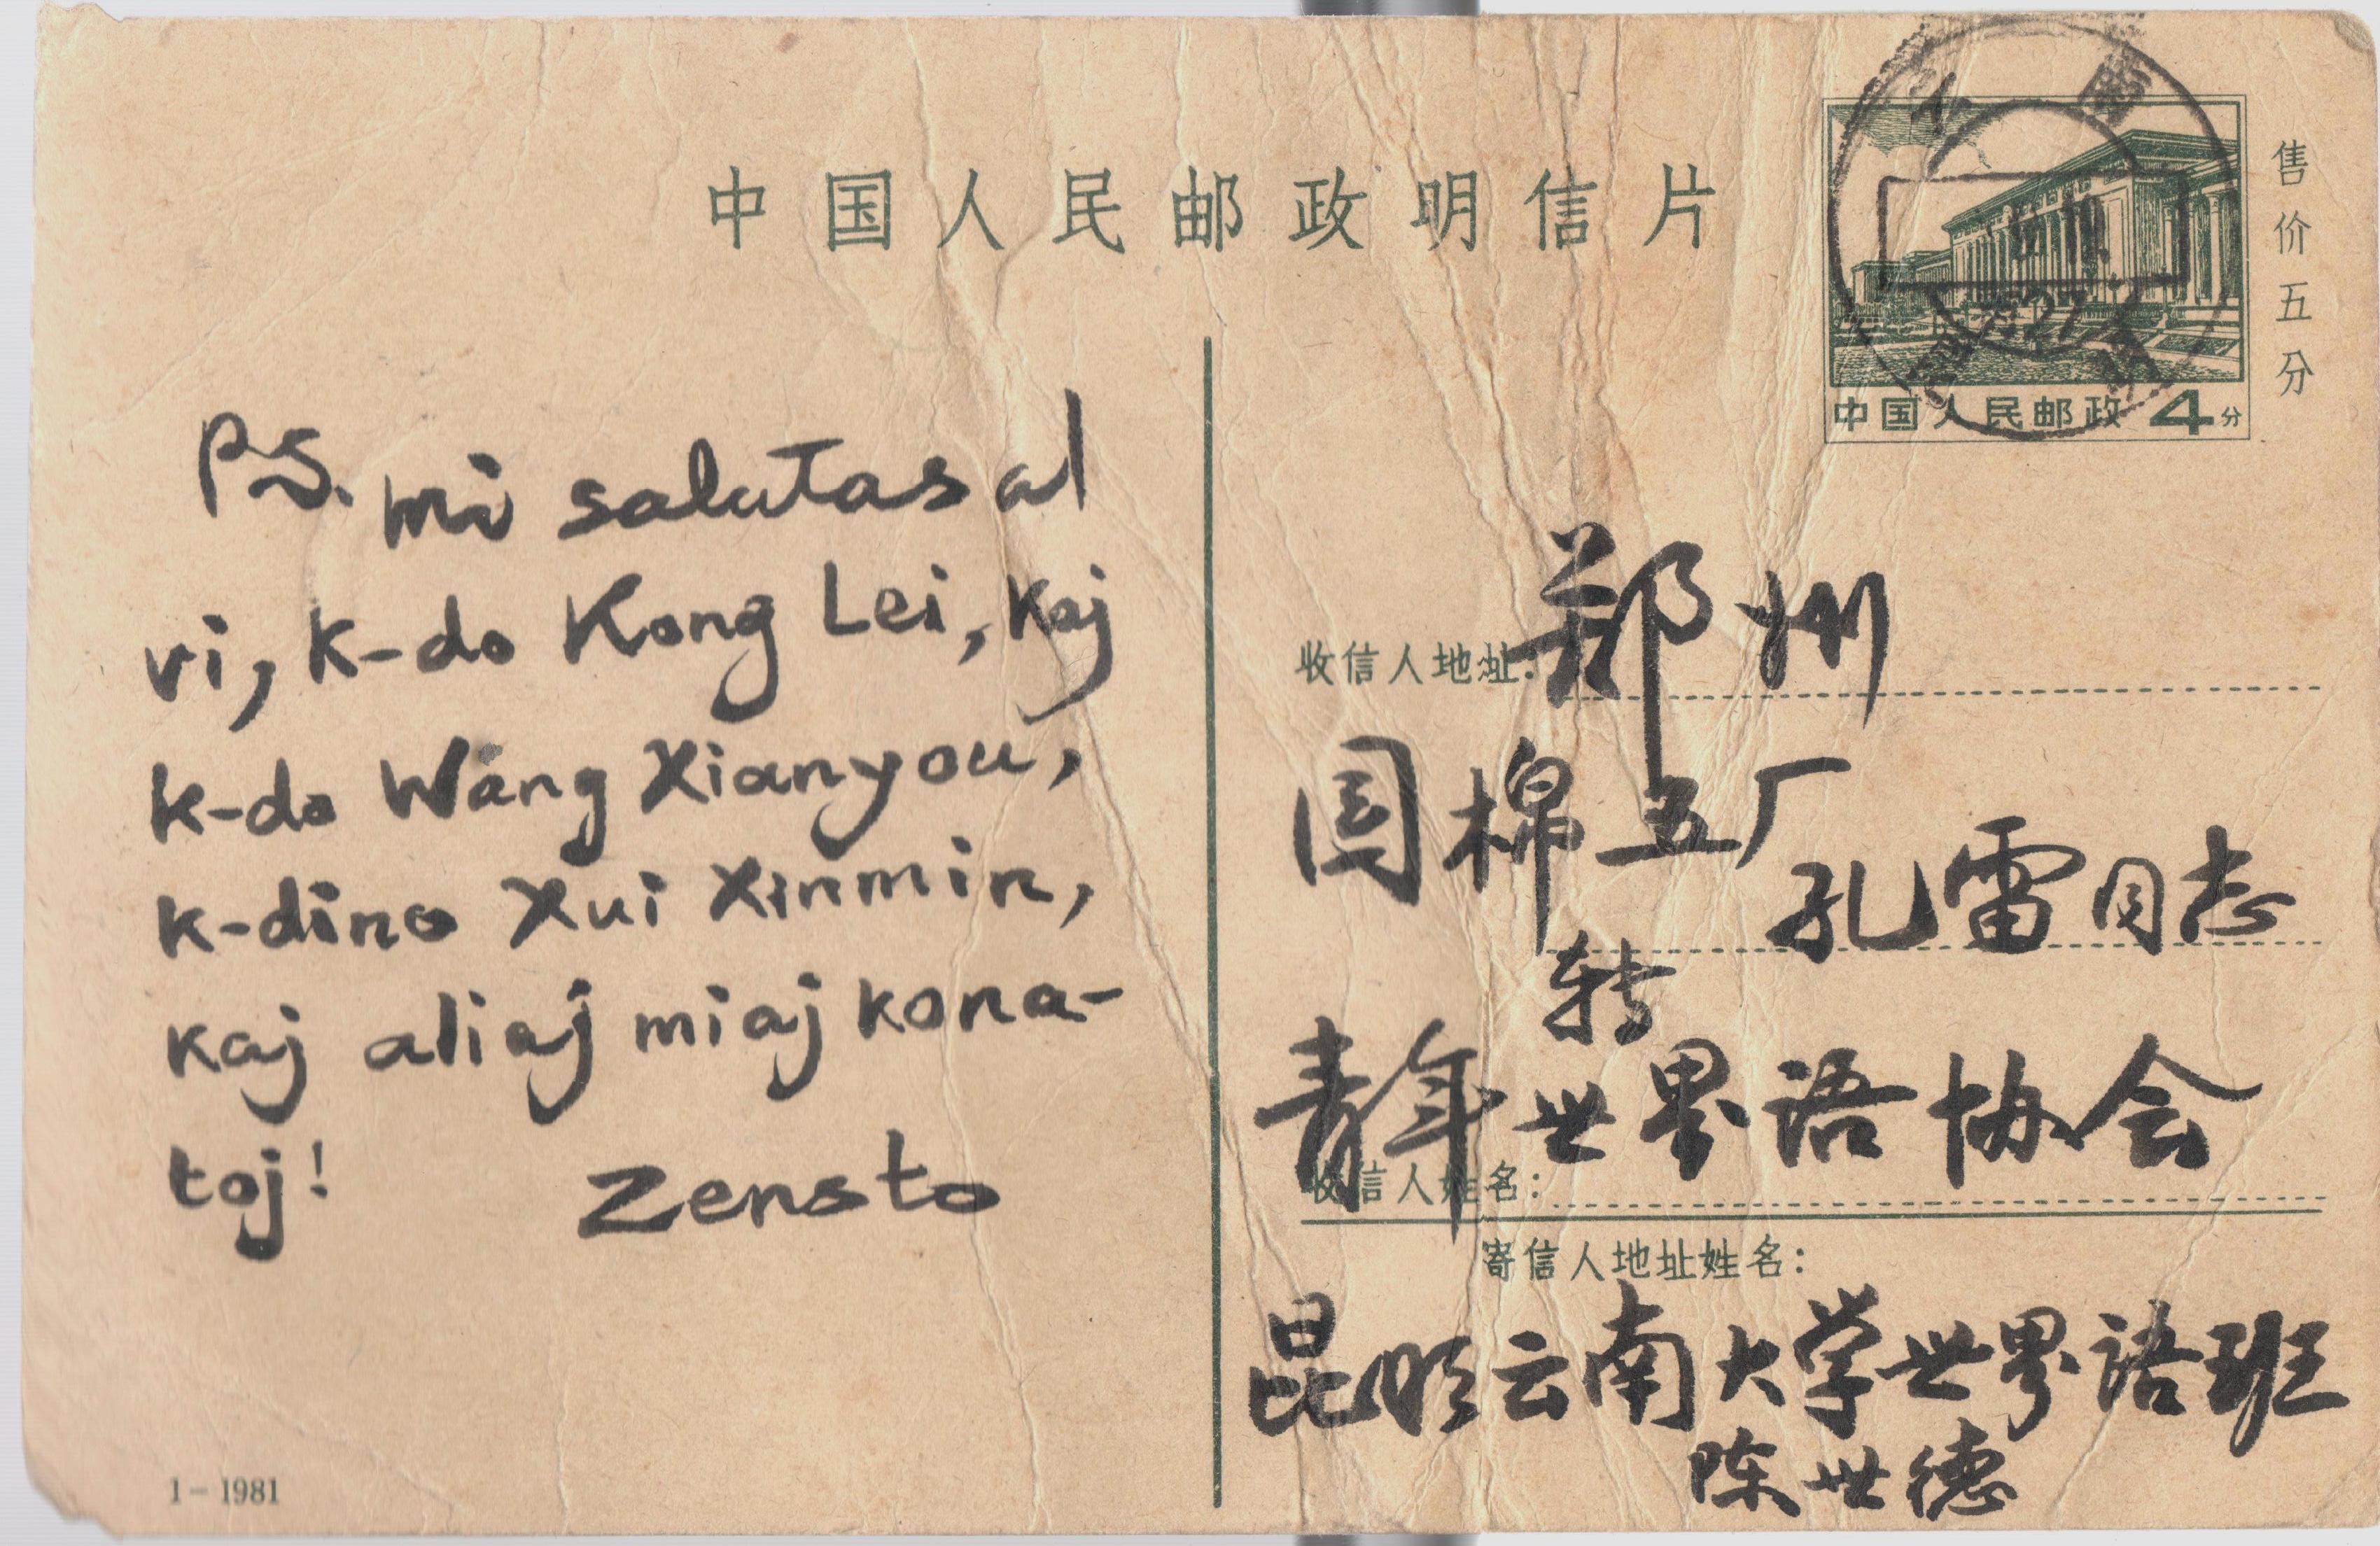 中国人民邮政明信片
售价五分
中国人民邮政 4分
P.S. mi salutas al
vi, k-do Kong Lei, kaj
k-do Wang Xianyou,
k-dino Xui Xinmin,
kaj aliaj miaj kona-
toj!
Zensto
1-1981
收信人地址: 郑州
国棉五厂
孔雷同志
转
青年世界语协会
收信人姓名:
寄信人地址姓名:
昆明云南大学世界语班
陈世德